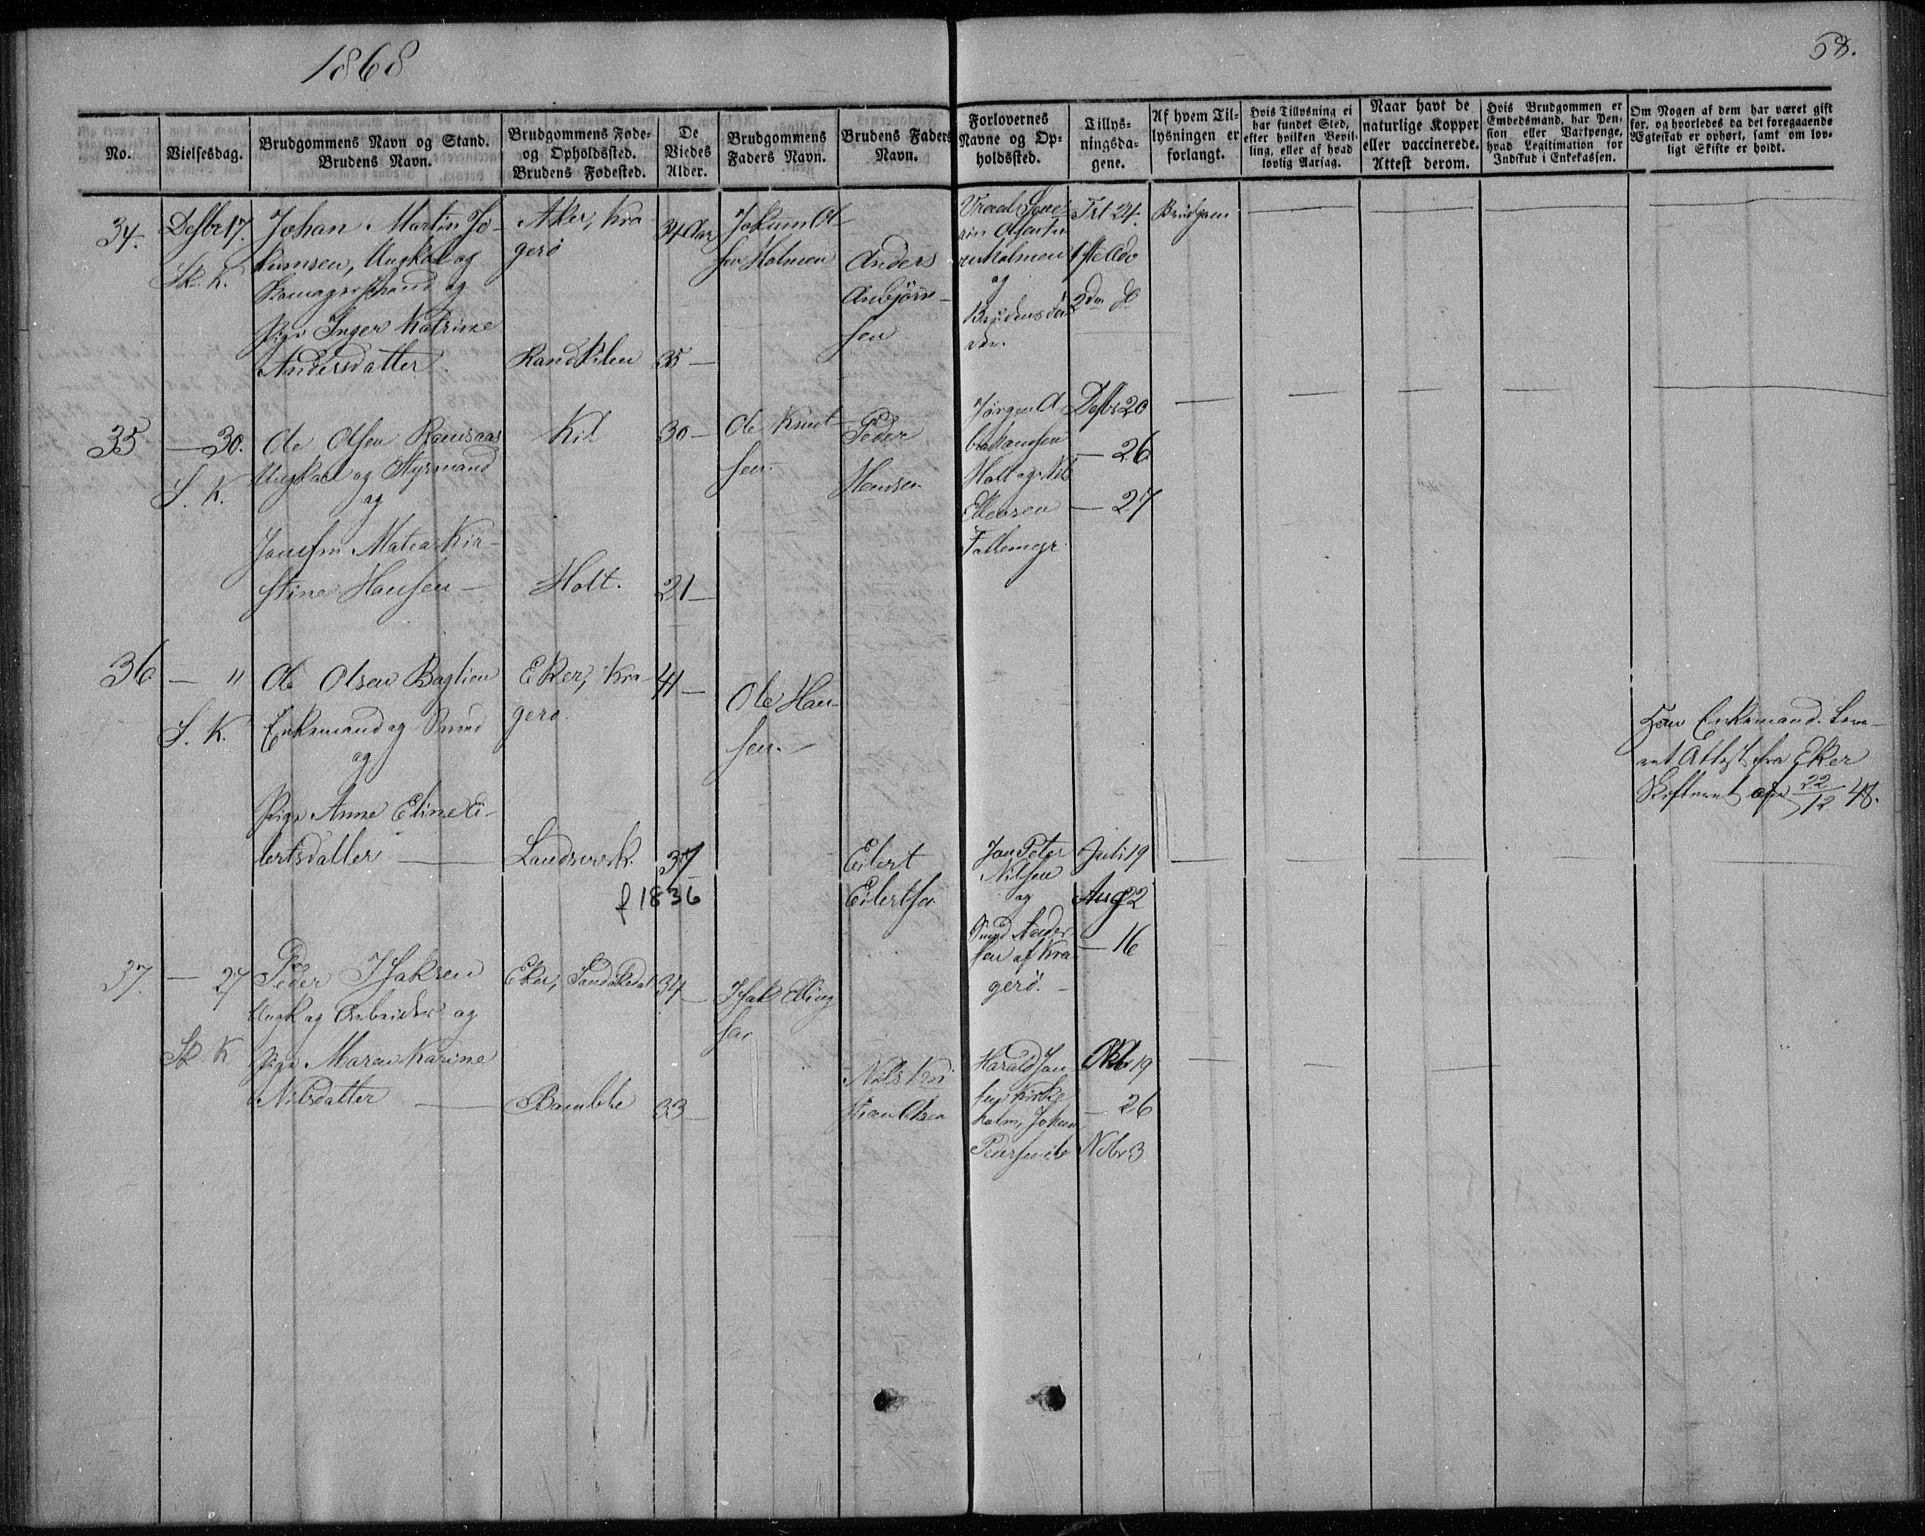 1868
58.
No.
Vielsesdag.
Brudgommens Navn og Stand.
Brudens Navn.
Brudgommens Føde-
og Opholdssted.
Brudens Fødested.
De
Viedes
Alder.
Brudgommens
Faders Navn.
Brudens Faders
Navn.
Forlovernes
Navne og Op-
holdssted.
Tillys-
ningsda-
gene.
Af hvem Til-
lysningen er
forlangt.
Hvis Tillysning ei
har fundet Sted,
efter hvilken Bevil-
ling, eller af hvad
lovlig Aarsag.
Naar havt de
naturlige Kopper
eller vaccinerede.
Attest derom.
Hvis Brudgommen er
Embedsmand, har Pen-
sion eller Vartpenge,
hvad Legitimation for
Indskud i Enkekassen.
Om Nogen af dem har været gift
før, og hvorledes da det foregaaende
Ægteskab er ophørt, samt om lov-
ligt Skifte er holdt.
34.
Desbr 17.
Sk. K.
Johan Martin Jo-
kumsen, Ungkal og
og
Pige Inger Katrine
Andersdatter.
Aker, Kra
gerø
34 Aar
Jokum Ol
sen Holmen
Randkilen
35 —
Anders
Anbjørn-
sen
Olsen
Holmen
og
Brudens
Brudgom
35
— 30.
S. K.
Ole Olsen Ramsaas
Ungkal og Styrmand
og
Josefin Matea Kir-
stine Hansen —
Kil
30 —
Ole Knut
sen.
Holt.
21 —
Peder
Hansen
Jørgen A
Holt og Nils
Ellevsen
Desbr 20
— 26
— 27
36
— "
S. K.
Ole Olsen Bastien
Enkemand og Smed
og
Pige Anne Eline Ei-
lertsdatter —
Eker, Kra-
gerø.
41 —
Ole Han-
sen. —
Landsverk.
37
f 1836
Eilert
Eilertsen
Jan Peter
Nilsen
og
Smed Ander
sen af Kra
gerø. —
Juli 19
Aug 22
— 16
Han Enkemand. Leve-
ret Attest fra Eker
Skifteret af 22/12 48.
37.
— 27
Sk. K
Peder Isaksen
Ungk og Arbeider og
Pige Maren Karine
Nilsdatter —
Eker, Sandøkedal
34 —
Isak Elling
sen
Bamble
33 —
Nils Kri
stian Olsen
Harald Jan
sen Kirke
holm, Johan
Oktbr 19
— 26
Nvbr 3